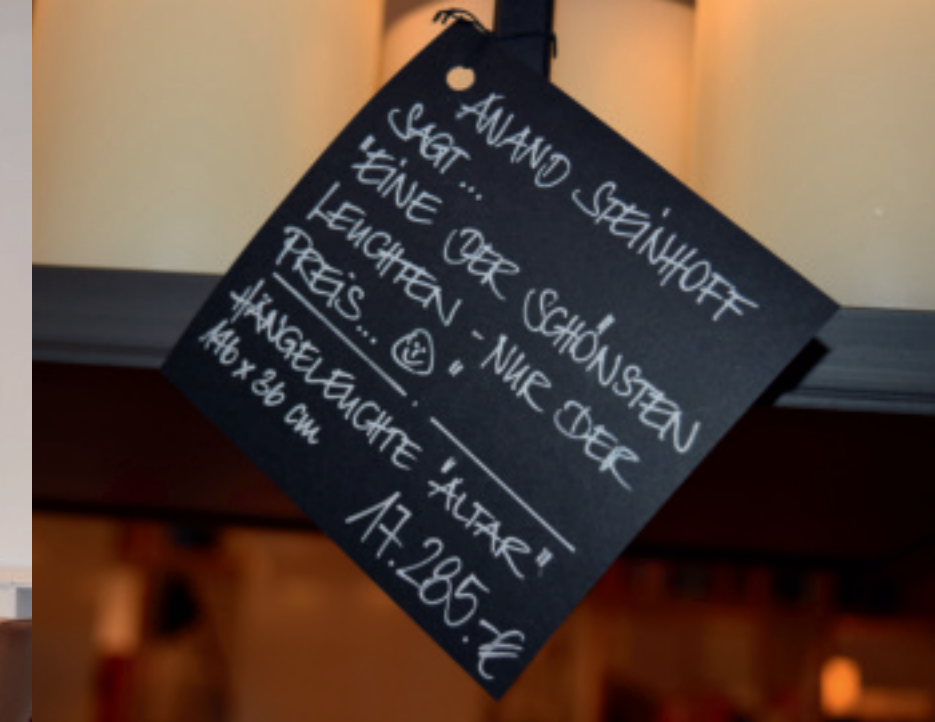 ANAND STEINHOFF
SAGT...
"EINE DER SCHÖNSTEN
LEUCHTEN - NUR DER
PREIS... "
HÄNGELEUCHTE "ALTAR"
146 x 36 cm
17.285.-€